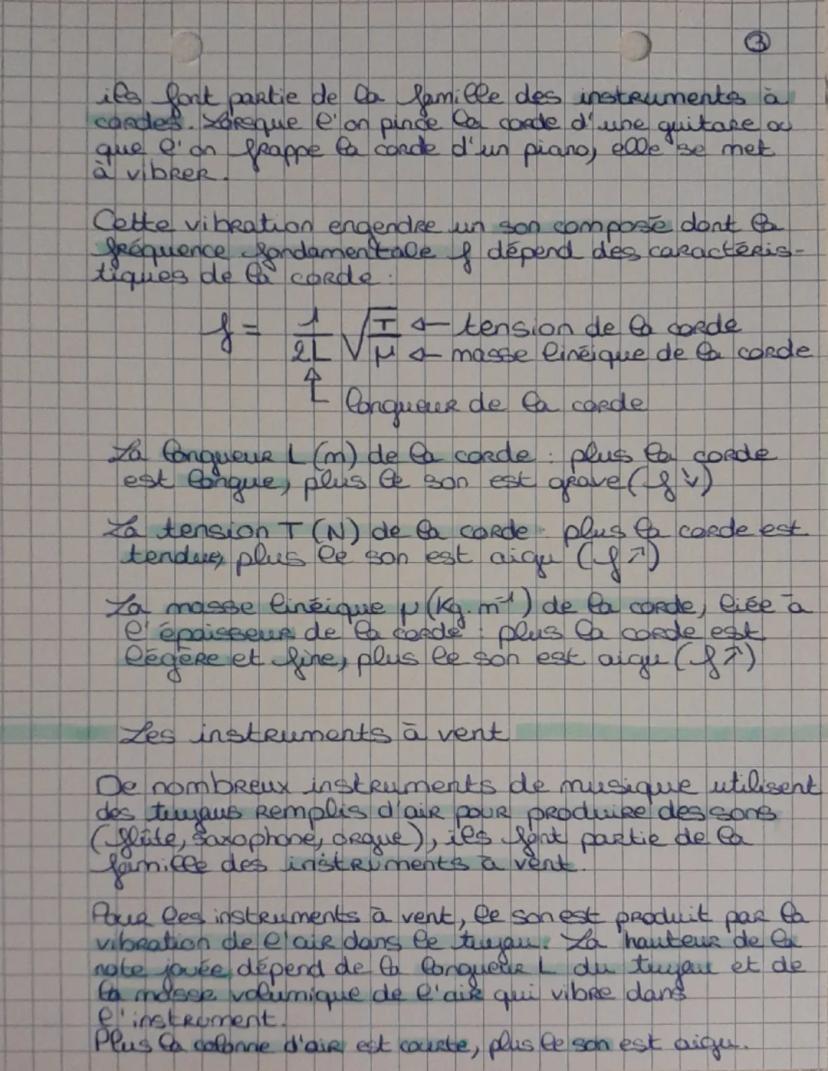 ③
ils font partie de la famille des instruments à
cordes. Lorsque l'on pince la corde d'une guitare ou
que l'on frappe la corde d'un piano, elle se met
à vibrer.
Cette vibration engendre un son composé dont la
fréquence fondamentale f dépend des caractéris-
tiques de la corde :
f = 1/2L √T/μ ← tension de la corde
← masse linéique de la corde
↑ longueur de la corde
La longueur L (m) de la corde : plus la corde
est longue, plus le son est grave (f ↘)
La tension T (N) de la corde : plus la corde est
tendue, plus le son est aigu (f ↗)
La masse linéique μ (kg.m⁻¹) de la corde, liée à
l'épaisseur de la corde : plus la corde est
légère et fine, plus le son est aigu (f ↗)
Les instruments à vent
De nombreux instruments de musique utilisent
des tuyaus remplis d'air pour produire des sons
(flûte, saxophone, orgue), ils font partie de la
famille des instruments à vent.
Pour les instruments à vent, le son est produit par la
vibration de l'air dans le tuyau. La hauteur de la
note jouée dépend de la longueur L du tuyau et de
la masse volumique de l'air qui vibre dans
l'instrument.
Plus la colonne d'air est courte, plus le son est aigu.